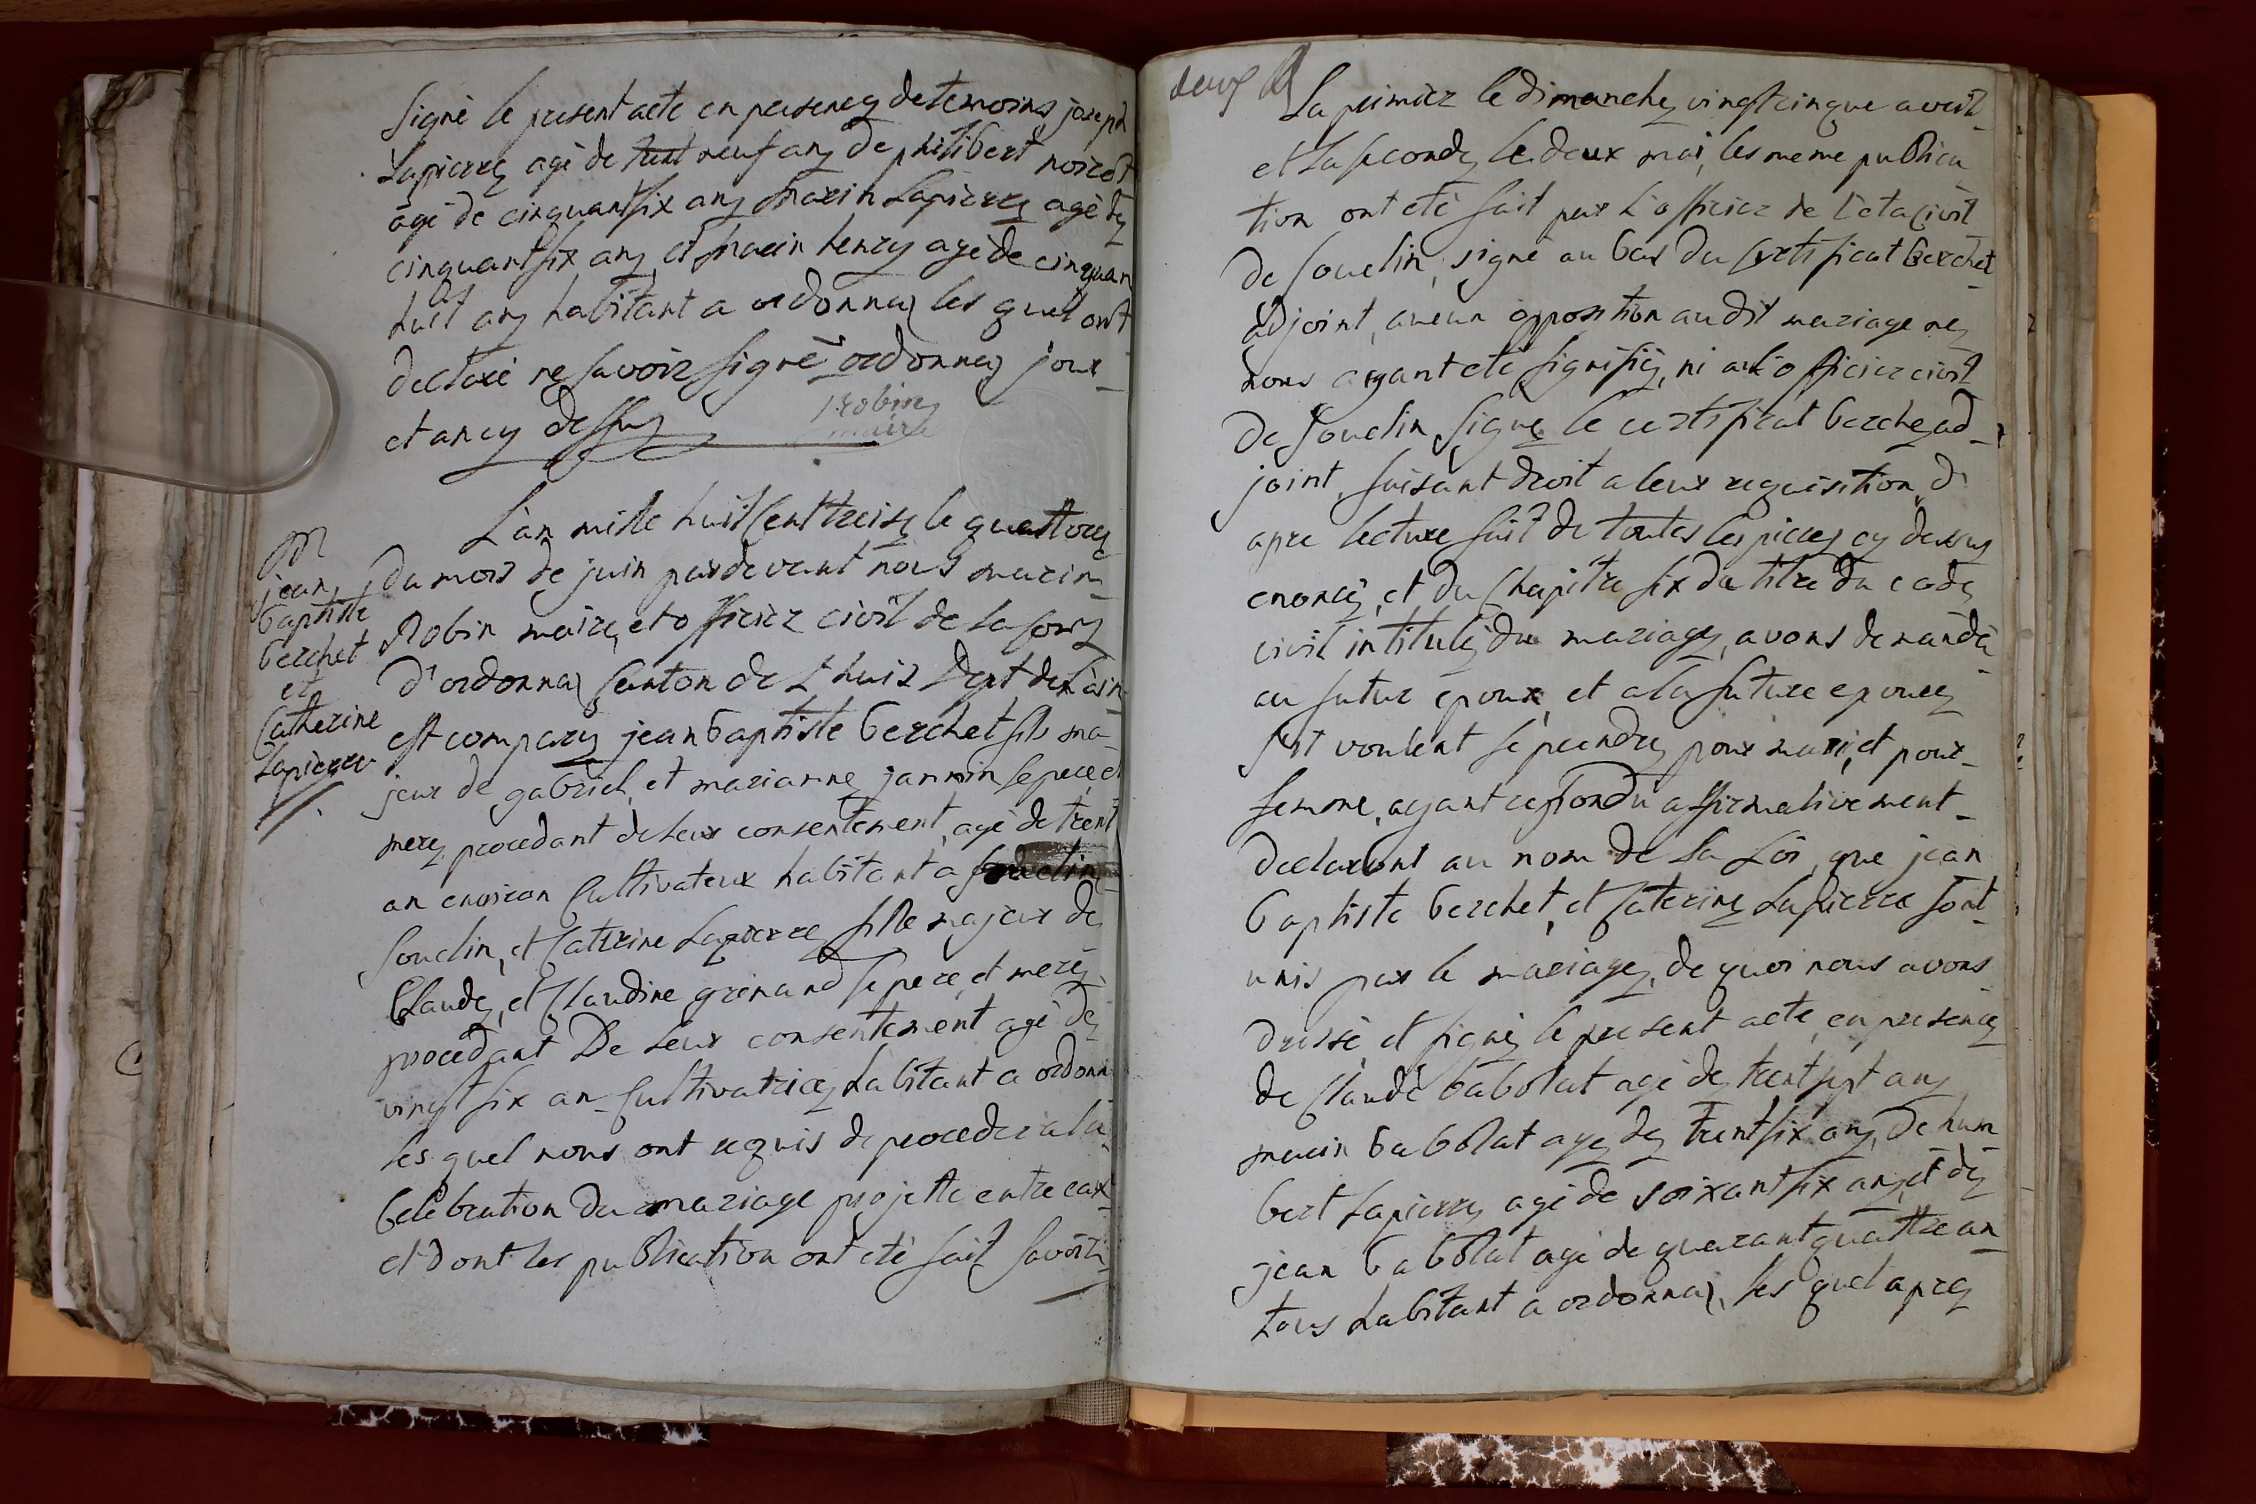 signé le present acte en presencez de temoins, joseph
Lapierrez agé de trent neuf anz de philibert noiret
agé de cinquant six anz marin Lapierrez agé dez
cinquant six anz, et marin henry agé de cinquan
huit anz habitant a ordonnaz les quel ont
declaré ne savoir signé ordonnaz jour
et an cy dessus
Robin
maire
L'an mille huit cent treize le quattorz
M
jean
baptiste
berchet
et
Catherine
Lapierre
du mois de juin par devant nous marin
Robin maire, et officier civil de la comz
d'ordonnaz canton de L'huis Dept de L'ain
est comparu jean baptiste berchet fils ma-
jeur de gabriel, et marianne jannin se pere et
merez procedant de leur consentement, agé de trent
an environ cultivateur habitant a
souclin, et Catterine Lapierre fille majeur de
Claudez, et Claudine grinand se pere, et merez
procedant De leur consentement agé dez
vingt six an cultivatricez habitant a ordonn
les quel nous ont requis de proceder a la
Celebration du mariage projetté entre eux
et dont les publication ont eté fait savoir
deux
La premier le dimanchez vingt cinque avril
et la secondez le deux mai, les meme publica
tion ont eté fait par L'officier de l'eta civil
de souclin, signé au bas du certificat berchet
adjoint, aucun opposition audit mariage nez
nous ayant eté signifiéz, ni a l'officier civil
de souclin signez le certificat berchez ad-
joint, faisant droit a leur requisition d'
apre lecture fait de toutes les piecez cy dessus
enoncéz, et du Chapitre six du titre du codez
civil intituléz du mariagez, avons demandé
au futur epoux, et a la future epousez
s'il voulent se prendrez pour mari, et pour
femme, ayant repondu affirmativement
declaront au nom de La Loi, que jean
baptiste berchet, et Caterinez Lapierre sont
unis par le mariagez, de quoi nous avons
dressé, et signéz le present acte, en presencez
de Claude babolat agé dez trent sept anz
marin babolat agez dez trent six anz, de hum
bert Lapierrez agé de soixant six anz, et dez
jean babolat agé de quarant quattre an
tous habitant a ordonnaz, les quel aprez